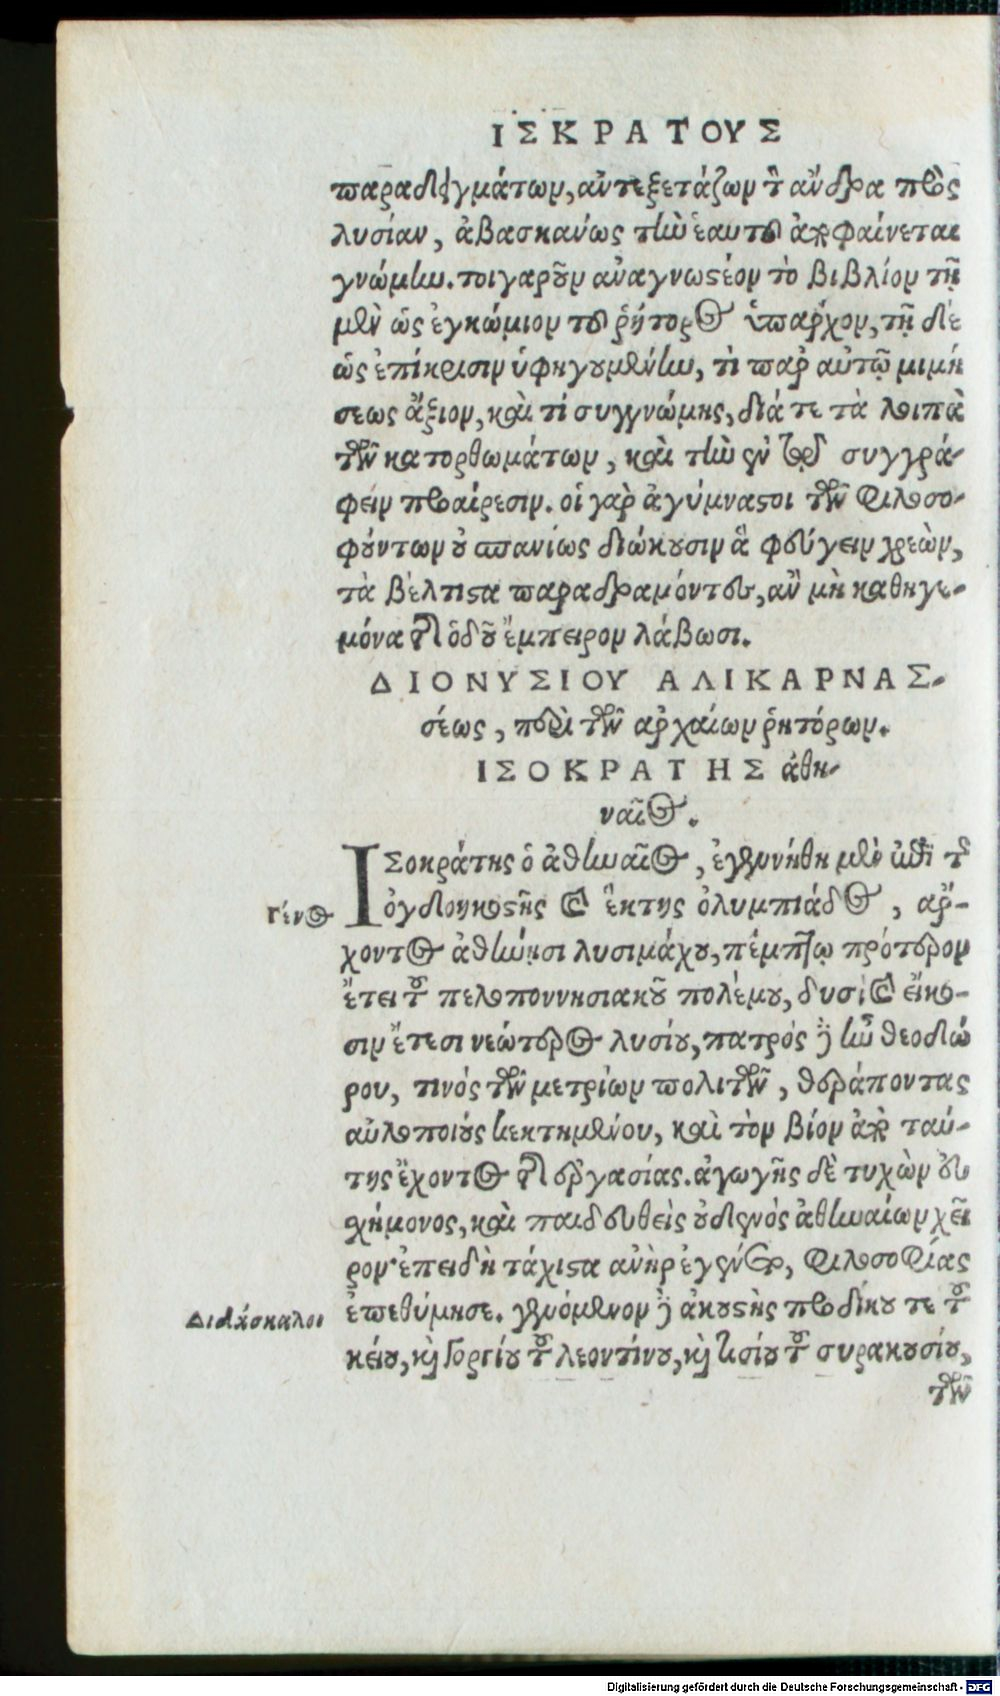 ΙΣΚΡΑΤΟΥΣ
παραδειγμάτων, ἀντεξετάζων τὸν ἄνδρα πρὸς
λυσίαν, ἀβασκάνως τὴν ἑαυτοῦ ἀποφαίνεται
γνώμην. τοιγαροῦν ἀναγνωστέον τὸ βιβλίον τῇ
μὲν ὡς ἐγκώμιον τοῦ ῥήτορος ὑπάρχον, τῇ δὲ
ὡς ἐπίκρισιν ὑφηγουμένην, τὶ παρ αὐτῷ μιμή
σεως ἄξιον, καὶ τί συγγνώμης, διά τε τὰ λοιπὰ
τῶν κατορθωμάτων, καὶ τὴν ἐν συγγρά-
φειν προαίρεσιν. οἱ γὰρ ἀγύμναστοι τῶν φιλοσο-
φούντων οὐ σπανίως διώκουσιν ἃ φεύγειν χρεὼν,
τὰ βέλτιστα παραδραμόντες, ἂν μὴ καθηγε-
μόνα τῆς ὁδοῦ ἔμπειρον λάβωσι.
ΔΙΟΝΥΣΙΟΥ ΑΛΙΚΑΡΝΑΣ-
σέως, περὶ τῶν ἀρχαίων ῥητόρων.
ΙΣΟΚΡΑΤΗΣ ἀθη-
ναῖος.
ΙΣοκράτης ὁ ἀθηναῖος, ἐγεννήθη μὲν ἐπὶ τῆς
Γένος
ὀγδοηκοστῆς καὶ ἕκτης ὀλυμπιάδος, ἄρ-
χοντος ἀθήνησι λυσιμάχου, πέμπτῳ πρότερον
ἔτει τοῦ πελοποννησιακοῦ πολέμου, δυσὶ καὶ εἴκο-
σιν ἔτεσι νεώτερος λυσίου, πατρός δὲ ἦν θεοδώ
ρου, τινός τῶν μετρίων πολιτῶν, θεράποντας
αὐλοποιούς κεκτημένου, καὶ τὸν βίον ἀπὸ ταύ-
της ἔχοντος τῆς ἐργασίας. ἀγωγῆς δὲ τυχὼν εὐ
σχήμονος, καὶ παιδευθεὶς οὐδενὸς ἀθηναίων χεῖ
ρον· ἐπειδὴ τάχιστα ἀνὴρ ἐγένετο, φιλοσοφίας
ἐπεθύμησε. γενόμενον δὲ ἀκουστὴς προδίκου τε τοῦ
Διδάσκαλοι
κείου, καὶ Γοργίου τοῦ λεοντίνου, καὶ τισίου τοῦ συρακουσίου,
τῶν
Digitalisierung gefördert durch die Deutsche Forschungsgemeinschaft - DFG